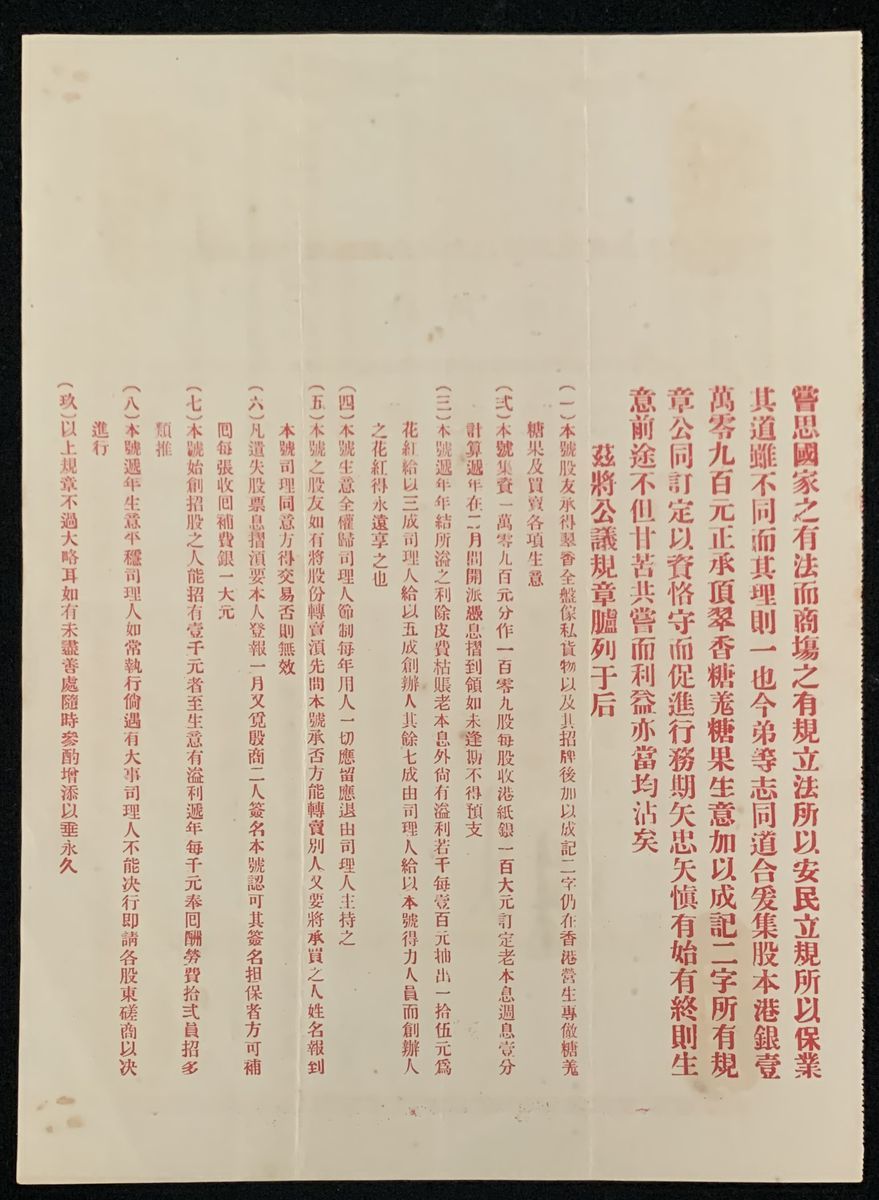 嘗思國家之有法而商塲之有規立法所以安民立規所以保業
其道雖不同而其理則一也今弟等志同道合爰集股本港銀壹
萬零九百元正承頂翠香糖羗糖果生意加以成記二字所有規
章公同訂定以資恪守而促進行務期矢忠矢愼有始有終則生
意前途不但甘苦共嘗而利益亦當均沾矣
茲將公議規章臚列于后
(一)本號股友承得翠香全盤傢私貨物以及其招牌後加以成記二字仍在香港營生專做糖羗
糖果及買賣各項生意
(弍)本號集資一萬零九百元分作一百零九股每股收港紙銀一百大元訂定老本息週息壹分
計算遞年在二月間開派憑息摺到領如未逢期不得預支
(三)本號遞年年結所溢之利除皮費枯賬老本息外尙有溢利若干每壹百元抽出一拾伍元爲
花紅給以三成司理人給以五成創辦人其餘七成由司理人給以本號得力人員而創辦人
之花紅得永遠享之也
(四)本號生意全權歸司理人節制每年用人一切應留應退由司理人主持之
(五)本號之股友如有將股份轉賣湏先問本號承否方能轉賣別人又要將承買之人姓名報到
本號司理同意方得交易否則無效
(六)凡遺失股票息摺湏要本人登報一月又覓殷商二人簽名本號認可其簽名担保者方可補
囘每張收囘補費銀一大元
(七)本號始創招股之人能招有壹千元者至生意有溢利遞年每千元奉囘酬勞費拾弍員招多
類推
(八)本號遞年生意平穩司理人如常執行倘遇有大事司理人不能决行即請各股東磋商以决
進行
(玖)以上規章不過大略耳如有未盡善處隨時參酌增添以垂永久